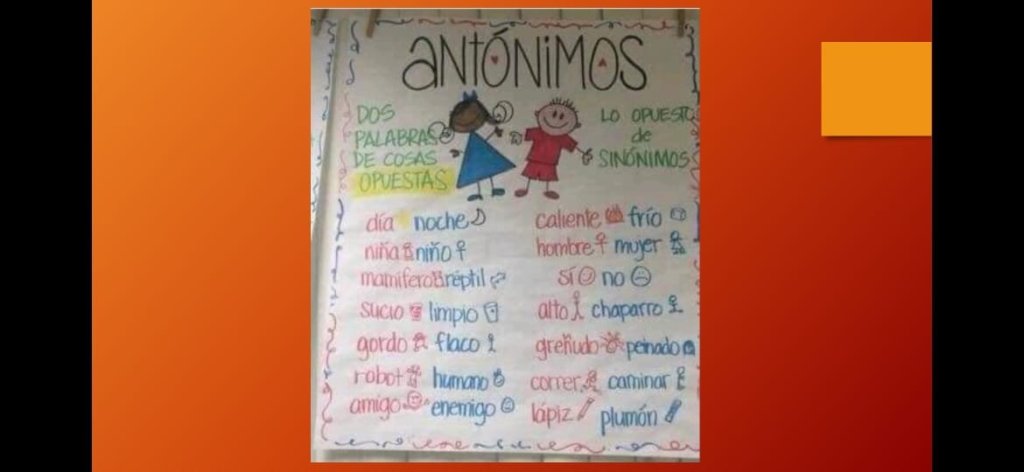 antónimos
DOS
PALABRAS
DE COSAS
OPUESTAS
LO OPUESTO
de
SINÓNIMOS
día noche
niña niño
mamífero réptil
sucio limpio
gordo flaco
robot humano
amigo enemigo
caliente frío
hombre mujer
sí no
alto chaparro
greñudo peinado
correr caminar
lápiz plumón